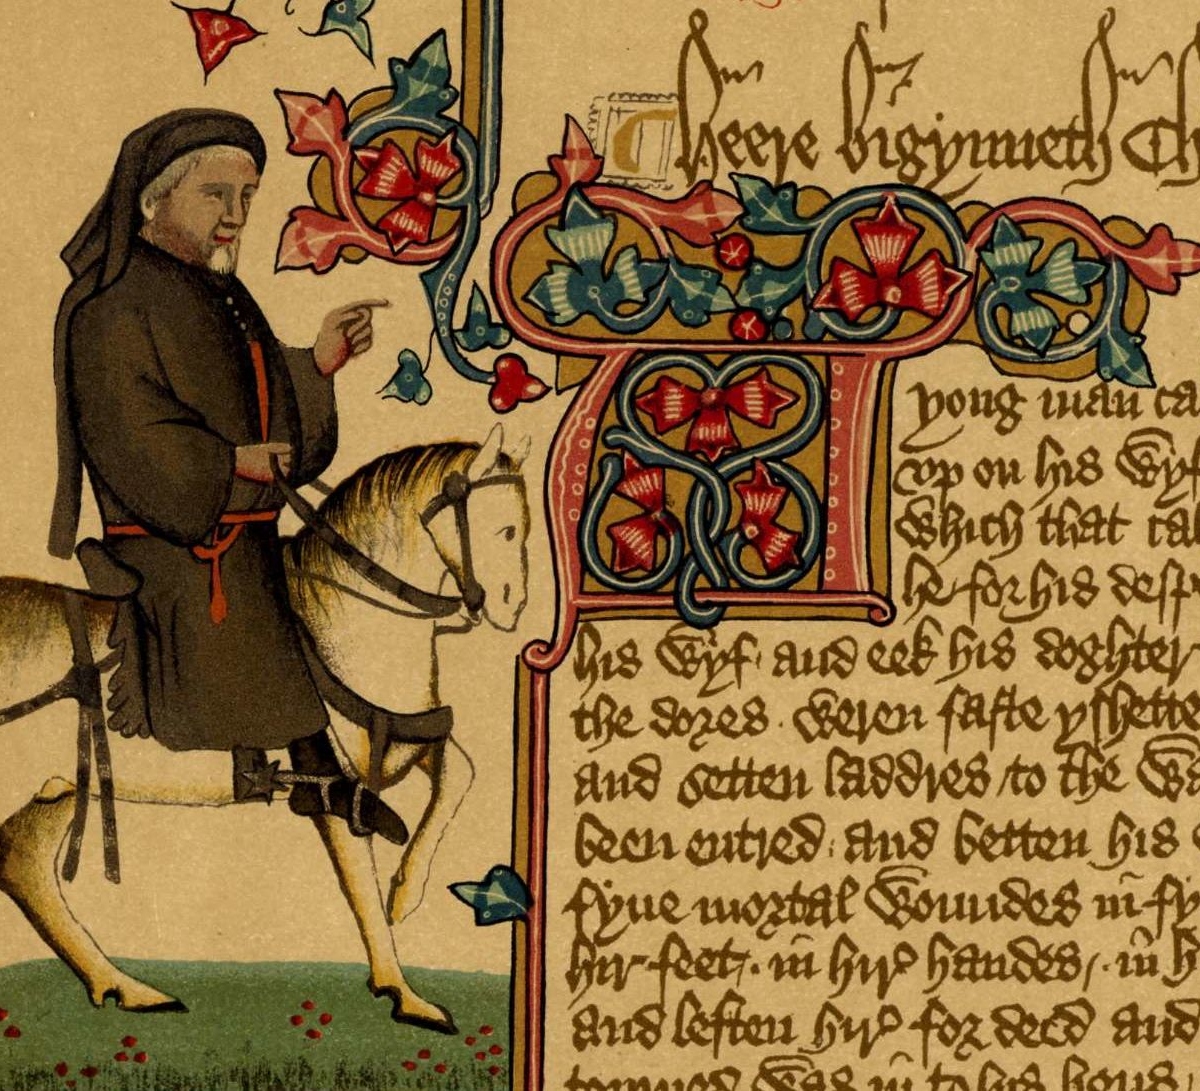 Heere bigynneth Ch
A
yong man ca
vp on his Wyf
Which that ca
he for his desp
his Wyf and eek his doghter
the dores weren faste yshette
and setten laddres to the Wa
been entred and betten his
fyue mortal Woundes in fy
hir feet in hir handes in h
and leften hir for deed and
tourned Was in to his hous